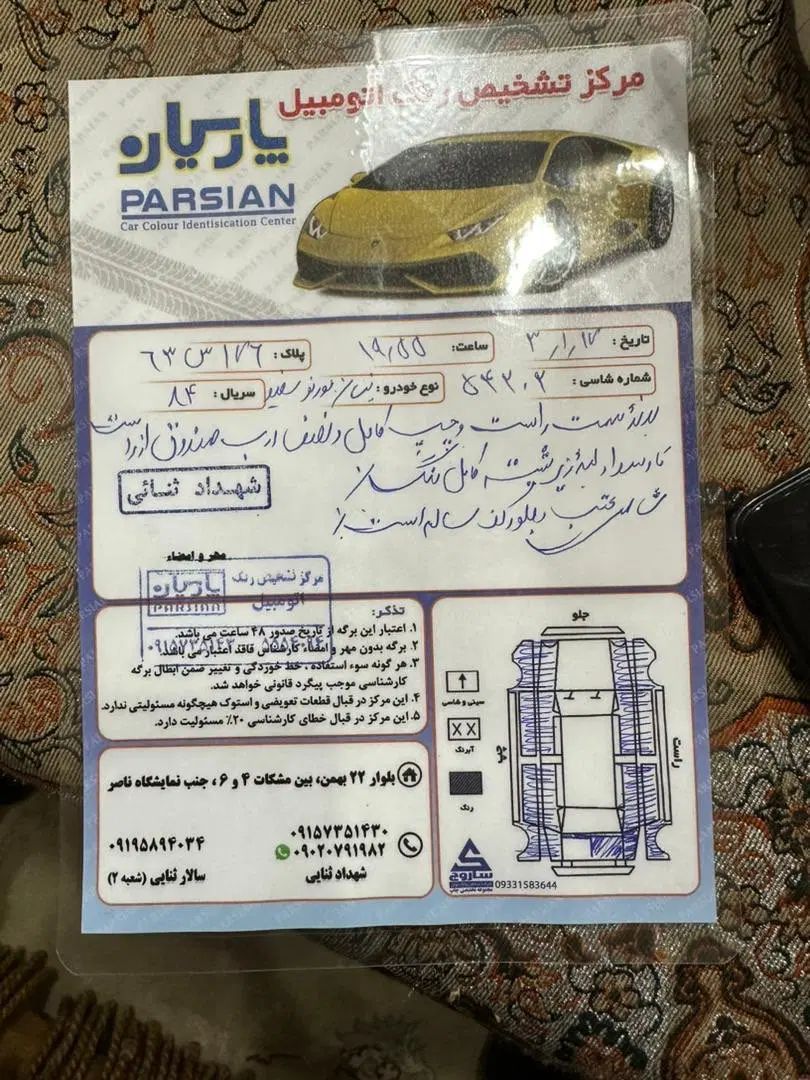 مرکز تشخیص رنگ اتومبیل
پارسیان
PARSIAN
Car Colour Identisication Center
تاریخ: ۳/۱/۱۲
ساعت: ۱۹,۵۵
پلاک: ۶۳ س ۱۲۶
شماره شاسی: ۵۴۲۰۲
نوع خودرو: سفید
سریال: ۸۴
بدنه سمت راست و چپ کامل و نصف درب صندوق از راست
کامل رنگ
شاسی عقب و جلو رکن سالم است
شهداد ثنائی
مهر و امضاء
مرکز تشخیص رنگ
اتومبیل
پارسیان
PARSIAN
تذکر:
۱. اعتبار این برگه از تاریخ صدور ۴۸ ساعت می باشد.
۲. برگه بدون مهر و امضاء کارشناس فاقد اعتبار می باشد.
۳. هر گونه سوء استفاده، خط خوردگی و تغییر ضمن ابطال برگه
کارشناسی موجب پیگرد قانونی خواهد شد.
۴. این مرکز در قبال قطعات تعویضی و استوک هیچگونه مسئولیتی ندارد.
۵. این مرکز در قبال خطای کارشناسی ۲۰٪ مسئولیت دارد.
جلو
راست
سینی و شاسی
XX
آبرنگ
رنگ
بلوار ۲۲ بهمن، بین مشکات ۴ و ۶، جنب نمایشگاه ناصر
۰۹۱۵۷۳۵۱۴۳۰
۰۹۰۲۰۷۹۱۹۸۲
شهداد ثنایی
۰۹۱۹۵۸۹۴۰۳۴
سالار ثنایی (شعبه ۲)
ساروج
09331583644